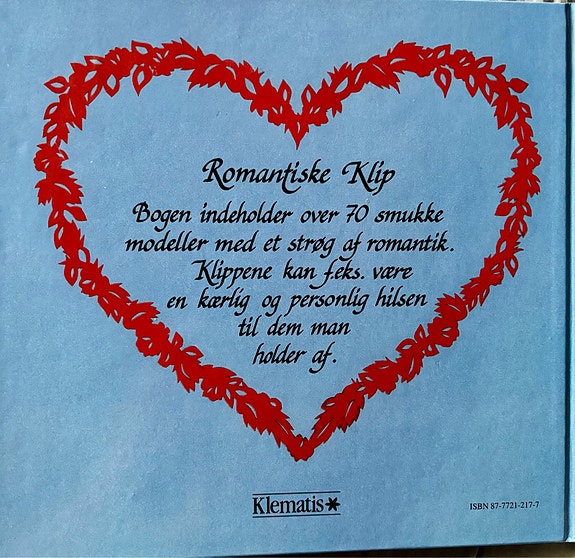 Romantiske Klip
Bogen indeholder over 70 smukke
modeller med et strøg af romantik.
Klippene kan f.eks. være
en kærlig og personlig hilsen
til dem man
holder af.
Klematis*
ISBN 87-7721-217-7